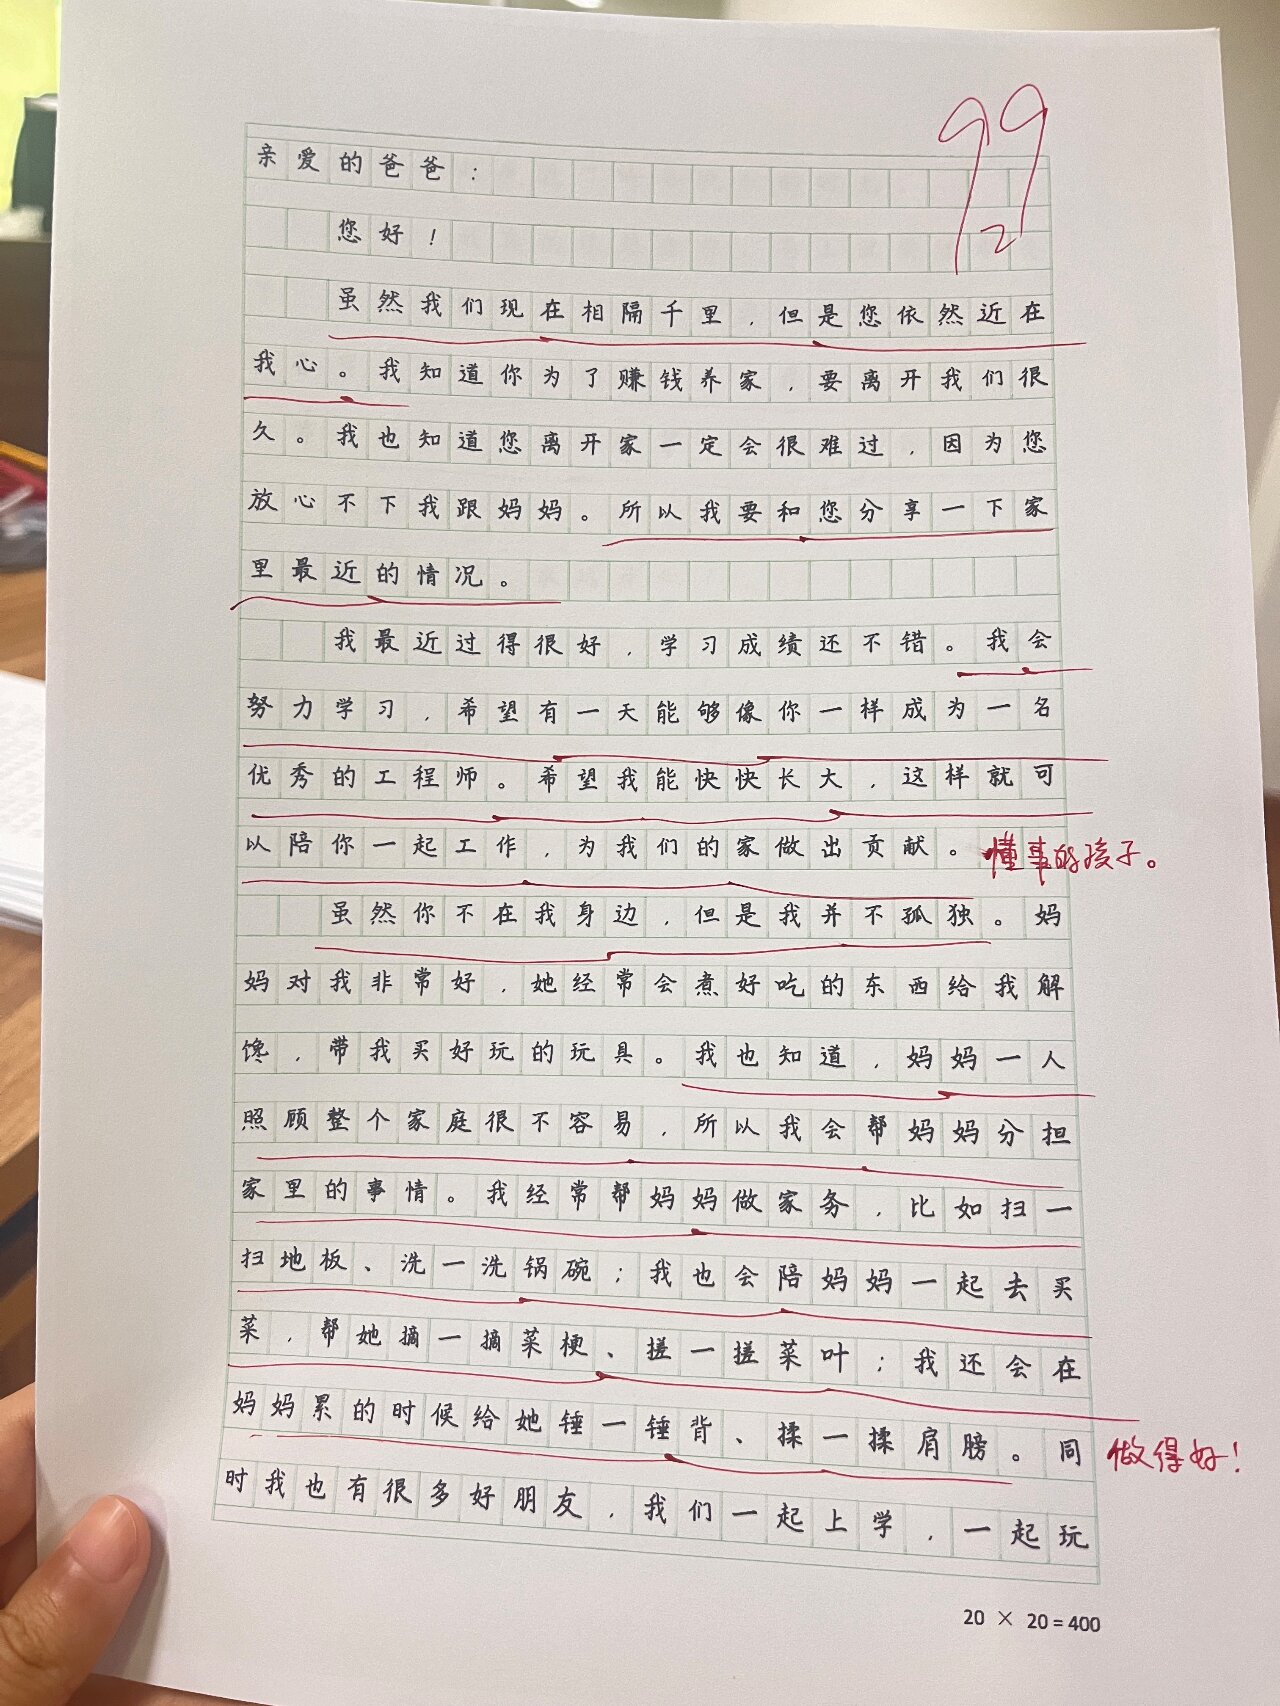 亲爱的爸爸：
您好！
虽然我们现在相隔千里，但是您依然近在
我心。我知道你为了赚钱养家，要离开我们很
久。我也知道您离开家一定会很难过，因为您
放心不下我跟妈妈。所以我要和您分享一下家
里最近的情况。
我最近过得很好，学习成绩还不错。我会
努力学习，希望有一天能够像你一样成为一名
优秀的工程师。希望我能快快长大，这样就可
以陪你一起工作，为我们的家做出贡献。
懂事的孩子。
虽然你不在我身边，但是我并不孤独。妈
妈对我非常好，她经常会煮好吃的东西给我解
馋，带我买好玩的玩具。我也知道，妈妈一人
照顾整个家庭很不容易，所以我会帮妈妈分担
家里的事情。我经常帮妈妈做家务，比如扫一
扫地板、洗一洗锅碗；我也会陪妈妈一起去买
菜，帮她摘一摘菜梗、搓一搓菜叶；我还会在
妈妈累的时候给她锤一锤背、揉一揉肩膀。同
做得好！
时我也有很多好朋友，我们一起上学，一起玩
20 × 20 = 400